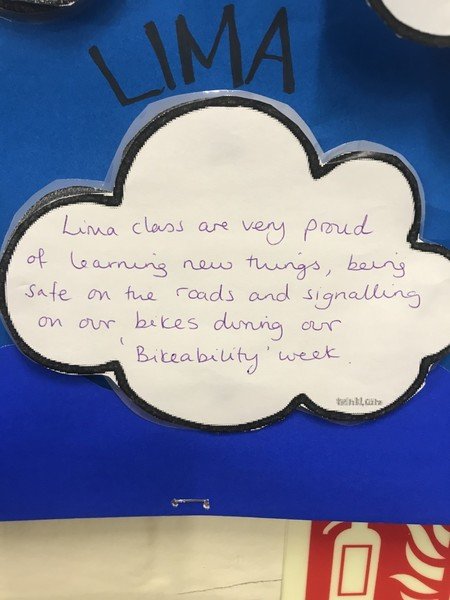 LIMA
Lima class are very proud
of learning new things, being
safe on the roads and signalling
on our bikes during our
'Bikeability' week.
twinkl.com